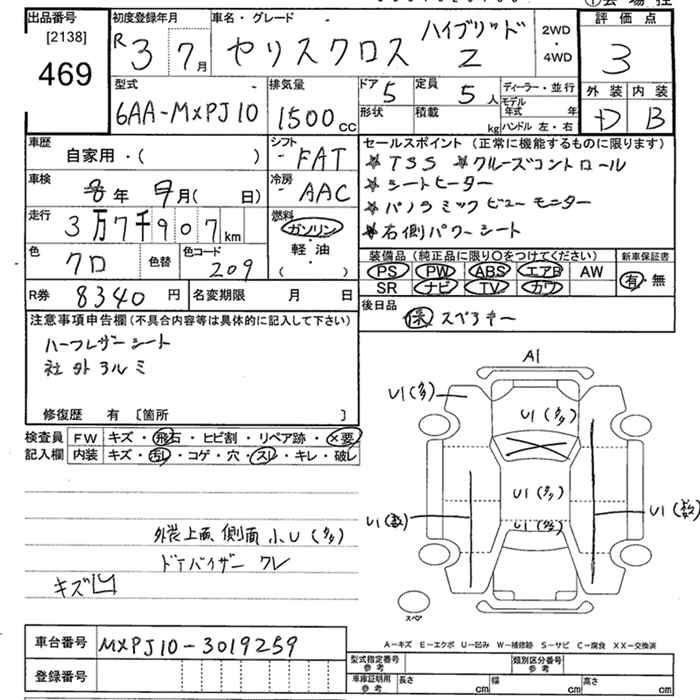 出品番号 初度登録年月 車名・グレード 2WD・4WD 評価点
[2138]
469 R3 7月 ヤリスクロス ハイブリッド Z 3
型式 排気量 ドア 5 定員 5人 ディーラー・並行 外装 内装
6AA-MXPJ10 1500cc 形状 積載 kg モデル年式 年 D B
ハンドル 左・右
車歴 シフト セールスポイント (正常に機能するものに限ります)
自家用・( ) FAT ★TSS ★クルーズコントロール
車検 8年 7月( 日) 冷房 AAC ★シートヒーター
走行 3万7千907km 燃料 ガソリン・軽油・( ) ★パノラミックビューモニター
★右側パワーシート
色 クロ 色替 色コード 209 装備品 (純正品に限り○をつけてください) 新車保証書
PS PW ABS エアB AW 有・無
SR ナビ TV カワ
R券 8340円 名変期限 月 日 後日品
注意事項申告欄(不具合内容等は具体的に記入して下さい) 保 スペアキー
ハーフレザーシート
社外アルミ
修復歴 有 [箇所 ]
検査員 FW キズ・飛石・ヒビ割・リペア跡・×要
記入欄 内装 キズ・汚れ・コゲ・穴・スレ・キレ・破レ
A1
U1(多)
U1(多)
U1(多)
U1(多)
U1(多)
U1(多数)
外装上面、側面 小U(多)
ドアバイザー ワレ
キズ凹
スペア
車台番号 MXPJ10-3019259
A-キズ E-エクボ U-凹み W-補修跡 S-サビ C-腐食 XX-交換済
登録番号 型式指定番号 参考 類別区分番号 参考
車庫証明用 参考 長さ cm 幅 cm 高さ cm